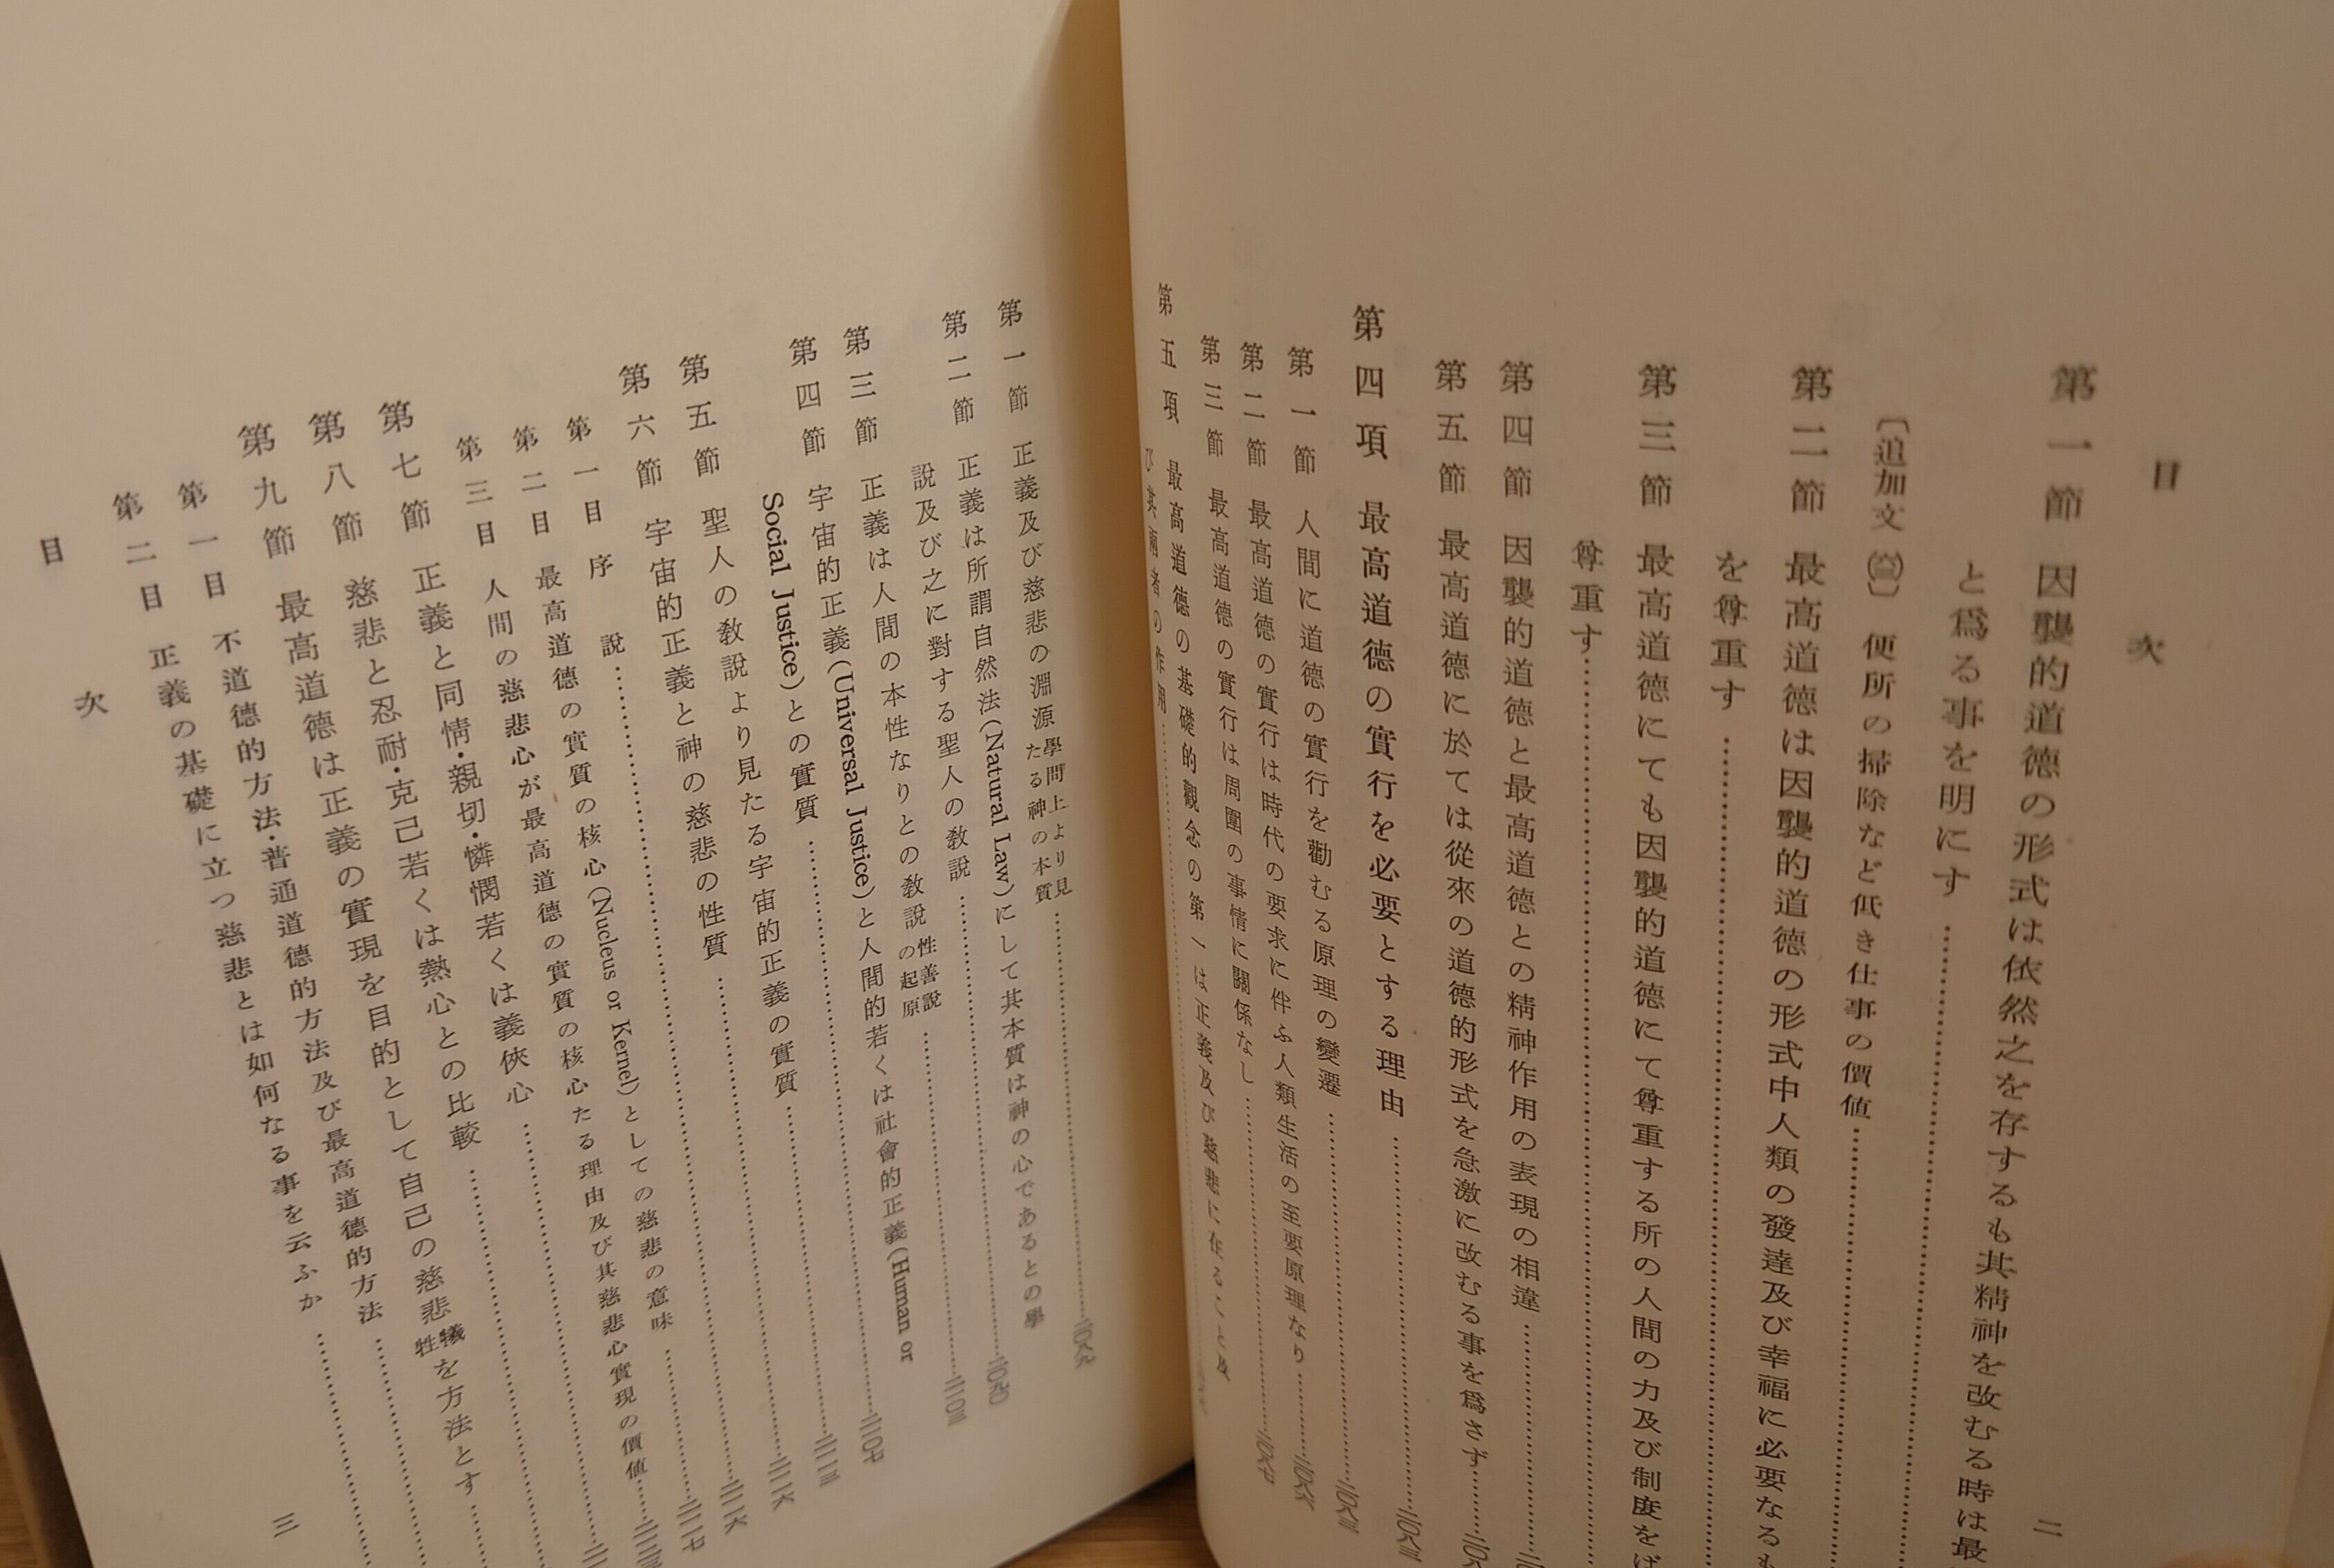 目次
二
第一節 因襲的道德の形式は依然之を存するも其精神を改むる時は最
と爲る事を明にす
〔追加文(三)〕 便所の掃除など低き仕事の價値
第二節 最高道德は因襲的道德の形式中人類の發達及び幸福に必要なるも
を尊重す
第三節 最高道德にても因襲的道德にて尊重する所の人間の力及び制度をば
尊重す
第四節 因襲的道德と最高道德との精神作用の表現の相違
第五節 最高道德に於ては從來の道德的形式を急激に改むる事を爲さず
第四項 最高道德の實行を必要とする理由
第一節 人間に道德の實行を勸むる原理の變遷
第二節 最高道德の實行は時代の要求に伴ふ人類生活の至要原理なり
第三節 最高道德の實行は周圍の事情に關係なし
第五項 最高道德の基礎的觀念の第一は正義及び慈悲に在ること及
び其兩者の作用
第一節 正義及び慈悲の淵源 學問上より見たる神の本質
第二節 正義は所謂自然法(Natural Law)にして其本質は神の心であるとの學
說及び之に對する聖人の敎說
第三節 正義は人間の本性なりとの敎說 性善說の起原
第四節 宇宙的正義(Universal Justice)と人間的若くは社會的正義(Human or
Social Justice)との實質
第五節 聖人の敎說より見たる宇宙的正義の實質
第六節 宇宙的正義と神の慈悲の性質
第一目 序 說
第二目 最高道德の實質の核心(Nucleus or Kernel)としての慈悲の意味
第三目 人間の慈悲心が最高道德の實質の核心たる理由及び其慈悲心實現の價値
第七節 正義と同情・親切・憐憫若くは義俠心
第八節 慈悲と忍耐・克己若くは熱心との比較
第九節 最高道德は正義の實現を目的として自己の慈悲犧牲を方法とす
第一目 不道德的方法・普通道德的方法及び最高道德的方法
第二目 正義の基礎に立つ慈悲とは如何なる事を云ふか
目次
三